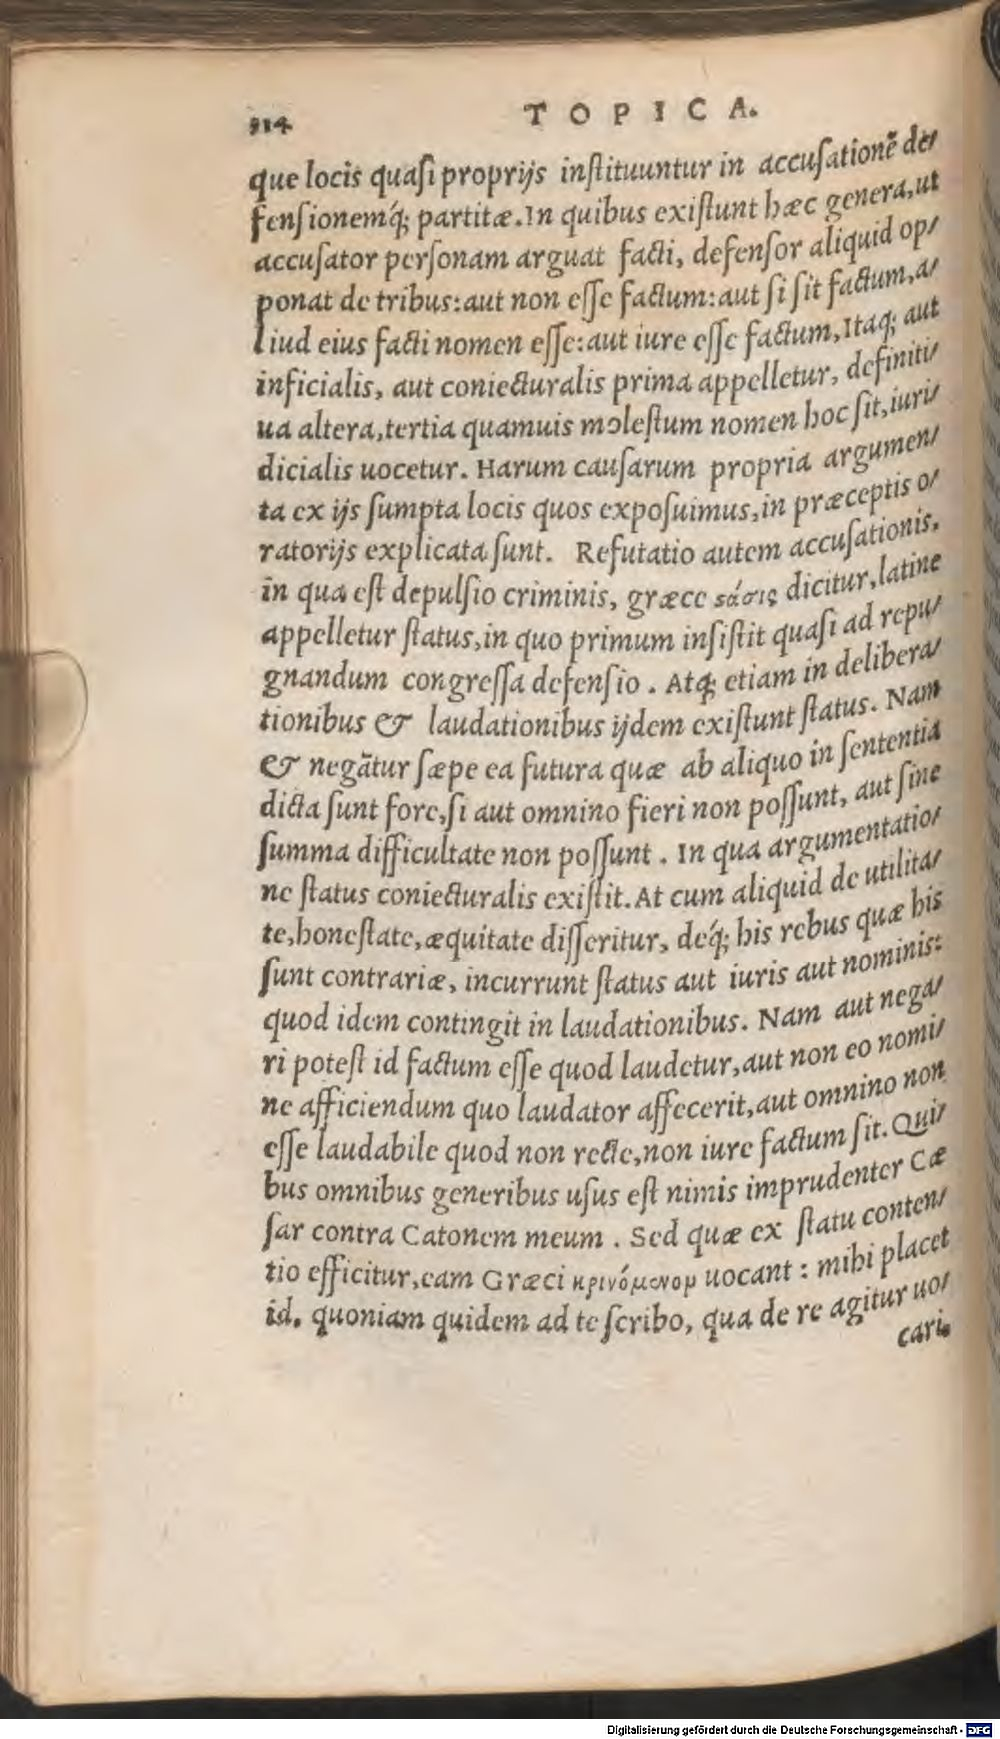 914
TOPICA.
que locis quaſi proprijs inſtituuntur in accuſationē de/
fenſionemq́; partitæ. In quibus exiſtunt hæc genera, ut
accuſator perſonam arguat facti, defenſor aliquid op/
ponat de tribus: aut non eſſe factum: aut ſi ſit factum, a/
liud eius facti nomen eſſe: aut iure eſſe factum, Itaq; aut
inficialis, aut coniecturalis prima appelletur, definiti/
ua altera, tertia quamuis moleſtum nomen hoc ſit, iuri/
dicialis uocetur. Harum cauſarum propria argumen/
ta ex ijs ſumpta locis quos expoſuimus, in præceptis o/
ratorijs explicata ſunt. Refutatio autem accuſationis,
in qua eſt depulſio criminis, græce ςάσις dicitur, latine
appelletur ſtatus, in quo primum inſiſtit quaſi ad repu/
gnandum congreſſa defenſio. Atq; etiam in delibera/
tionibus & laudationibus ijdem exiſtunt ſtatus. Nam
& negātur ſæpe ea futura quæ ab aliquo in ſententia
dicta ſunt fore, ſi aut omnino fieri non poſſunt, aut ſine
ſumma difficultate non poſſunt. In qua argumentatio/
ne ſtatus coniecturalis exiſtit. At cum aliquid de utilita/
te, honeſtate, æquitate diſſeritur, deq́; his rebus quæ his
ſunt contrariæ, incurrunt ſtatus aut iuris aut nominis:
quod idem contingit in laudationibus. Nam aut nega/
ri poteſt id factum eſſe quod laudetur, aut non eo nomi/
ne afficiendum quo laudator affecerit, aut omnino non
eſſe laudabile quod non recte, non iure factum ſit. Qui/
bus omnibus generibus uſus eſt nimis imprudenter Cæ
ſar contra Catonem meum. Sed quæ ex ſtatu conten/
tio efficitur, eam Græci κρινόμενον uocant: mihi placet
id, quoniam quidem ad te ſcribo, qua de re agitur uo/
cari.
Digitalisierung gefördert durch die Deutsche Forschungsgemeinschaft - DFG